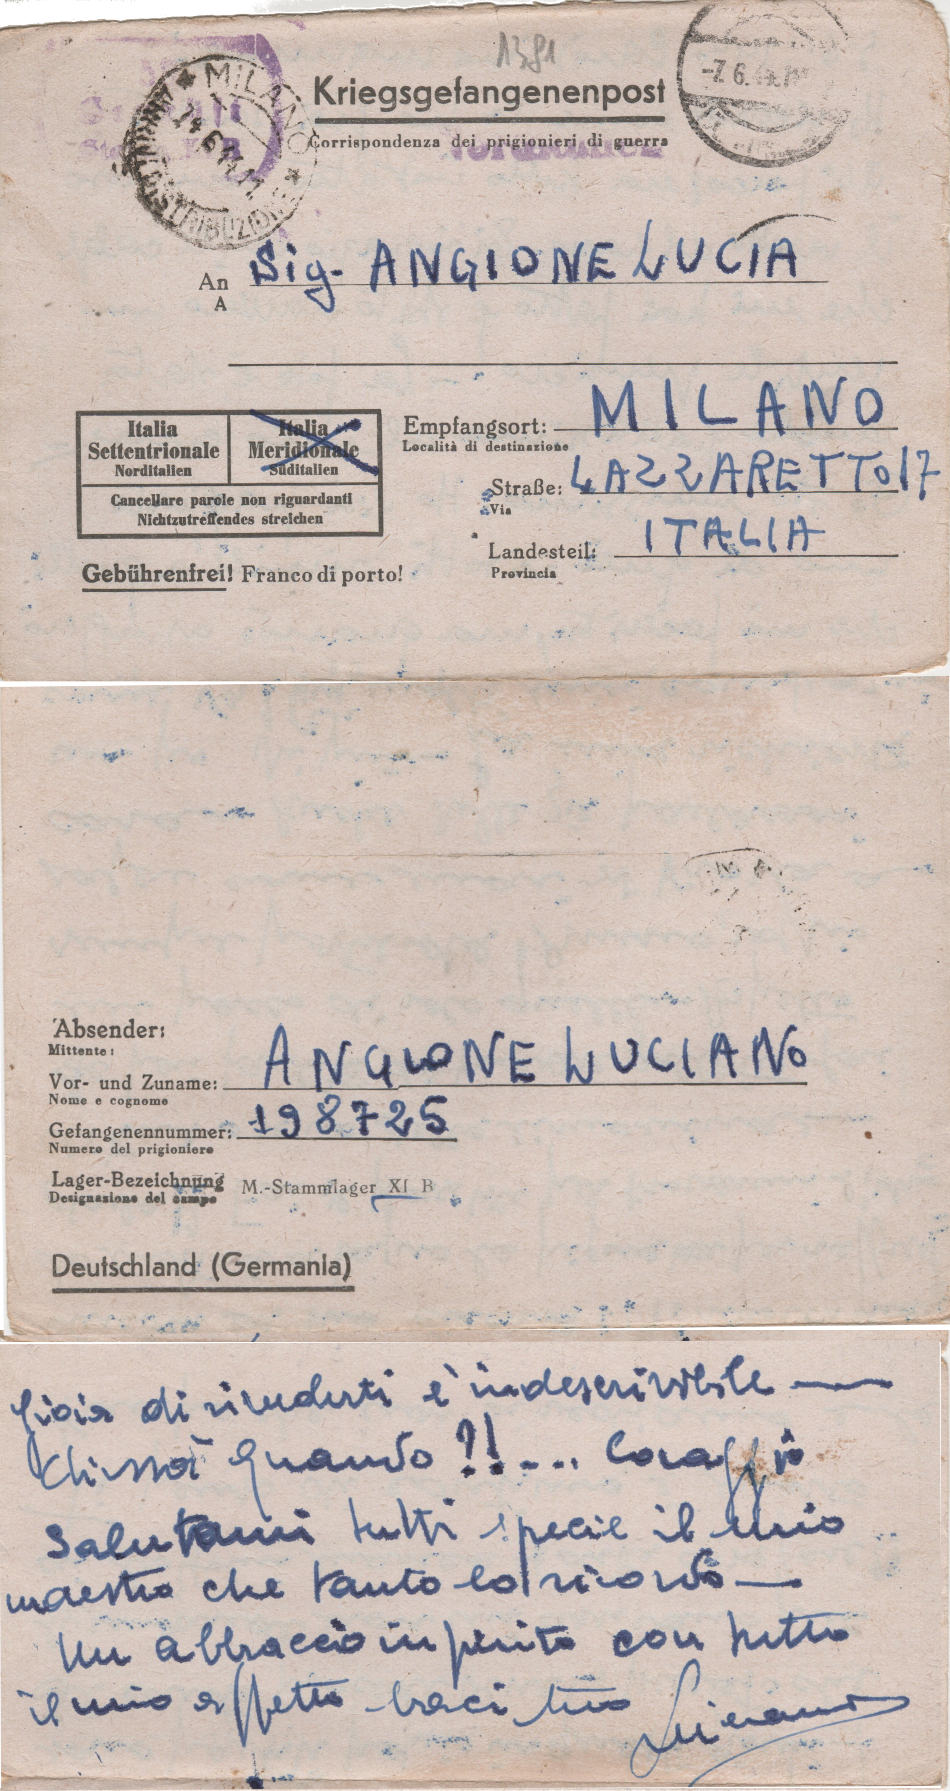 1381
Kriegsgefangenenpost
Corrispondenza dei prigionieri di guerra
MILANO
DISTRIBUZIONE
-7.6.44
An Sig- ANGIONE LUCIA
A
Italia
Settentrionale
Norditalien
Italia
Meridionale
Süditalien
Cancellare parole non riguardanti
Nichtzutreffendes streichen
Empfangsort: MILANO
Località di destinazione
Straße: LAZZARETTO 17
Via
Landesteil: ITALIA
Provincia
Gebührenfrei! Franco di porto!
Absender:
Mittente:
Vor- und Zuname: ANGIONE LUCIANO
Nome e cognome
Gefangenennummer: 198725
Numero del prigioniere
Lager-Bezeichnung M.-Stammlager XI B
Designazione del campo
Deutschland (Germania)
gioia di rivederti è indescrivibile —
Chissà quando ?!... Coraggio
Salutami tutti specie il mio
maestro che tanto lo ricordo —
Un abbraccio infinito con tutto
il mio affetto baci tuo Luciano